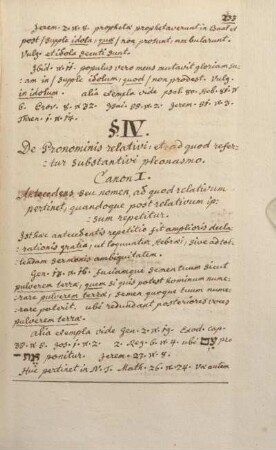 Jerem. 2. v. 8. prophetæ prophetaverunt in Baal et
post /supple idola:/ quæ / non prosunt, ambularunt.
Vulg. et idola secuti sunt.
Ibid. v. 11. populus vero meus mutavit gloriam su-
am in / supple idolum:/ quod / non prodest. Vulg.
in idolum. alia exempla vide psal. 80.
§ IV.
De Pronominis relativi, et ad quod refer-
tur substantivi pleonasmo.
Canon I.
Antecedens, seu nomen, ad quod relativum
pertinet, quandoque post relativum ip-
sum repetitur.
Isthæc antecedentis repetitio fit amplioris decla-
rationis gratia, ut loquuntur Hebræi, sive ad tol-
lendam sermonis ambiguitatem.
Gen. 13. v. 16. faciamque semen tuum sicut
pulverem terræ, quem si quis potest hominum nume-
rare pulverem terræ, semen quoque tuum nume-
rare poterit. ubi redundant posteriores voces
pulverem terræ.
alia exempla vide Gen. 2. v. 19. Exod. cap.
ubi עם pro
את ponitur. Jerem. 27. v. 8.
Huc pertinet in N. T. Math. 26. v. 24. Væ autem